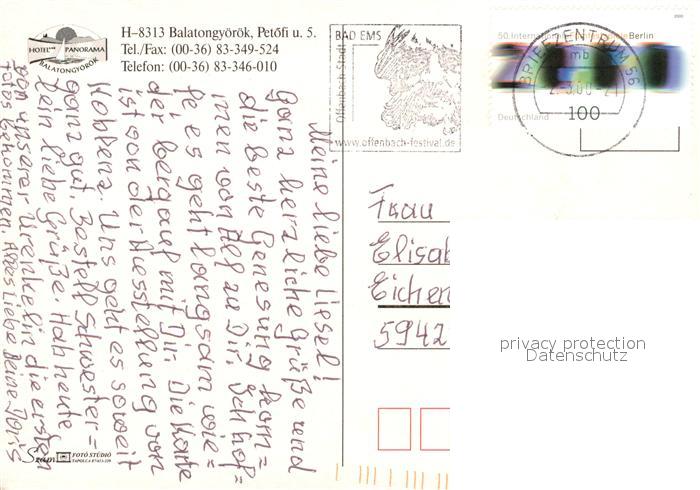 HOTEL*** PANORAMA
BALATONGYÖRÖK
H–8313 Balatongyörök, Petőfi u. 5.
Tel./Fax: (00-36) 83-349-524
Telefon: (00-36) 83-346-010
BAD EMS
Offenbach-Stadt
www.offenbach-festival.de
50. Internationale Berlin
2000
Deutschland
100
BRIEFZENTRUM 56
mb
Meine liebe Liesel!
Ganz herzliche Grüße und
die beste Genesung kom=
men von Alf zu Dir. Ich hof=
fe es geht langsam wie=
der bergauf mit Dir. Die Karte
ist von der Ausstellung von
Koblenz. Uns geht es soweit
ganz gut. Bestell Schwester=
lein liebe Grüße. Hab heute
von unserer Urenkelin die ersten
Fotos bekommen. Alles Liebe Deine Doris
Frau
Elisab
Eichen
5942
privacy protection
Datenschutz
Szami FOTÓ STÚDIÓ
TAPOLCA 87/413-239